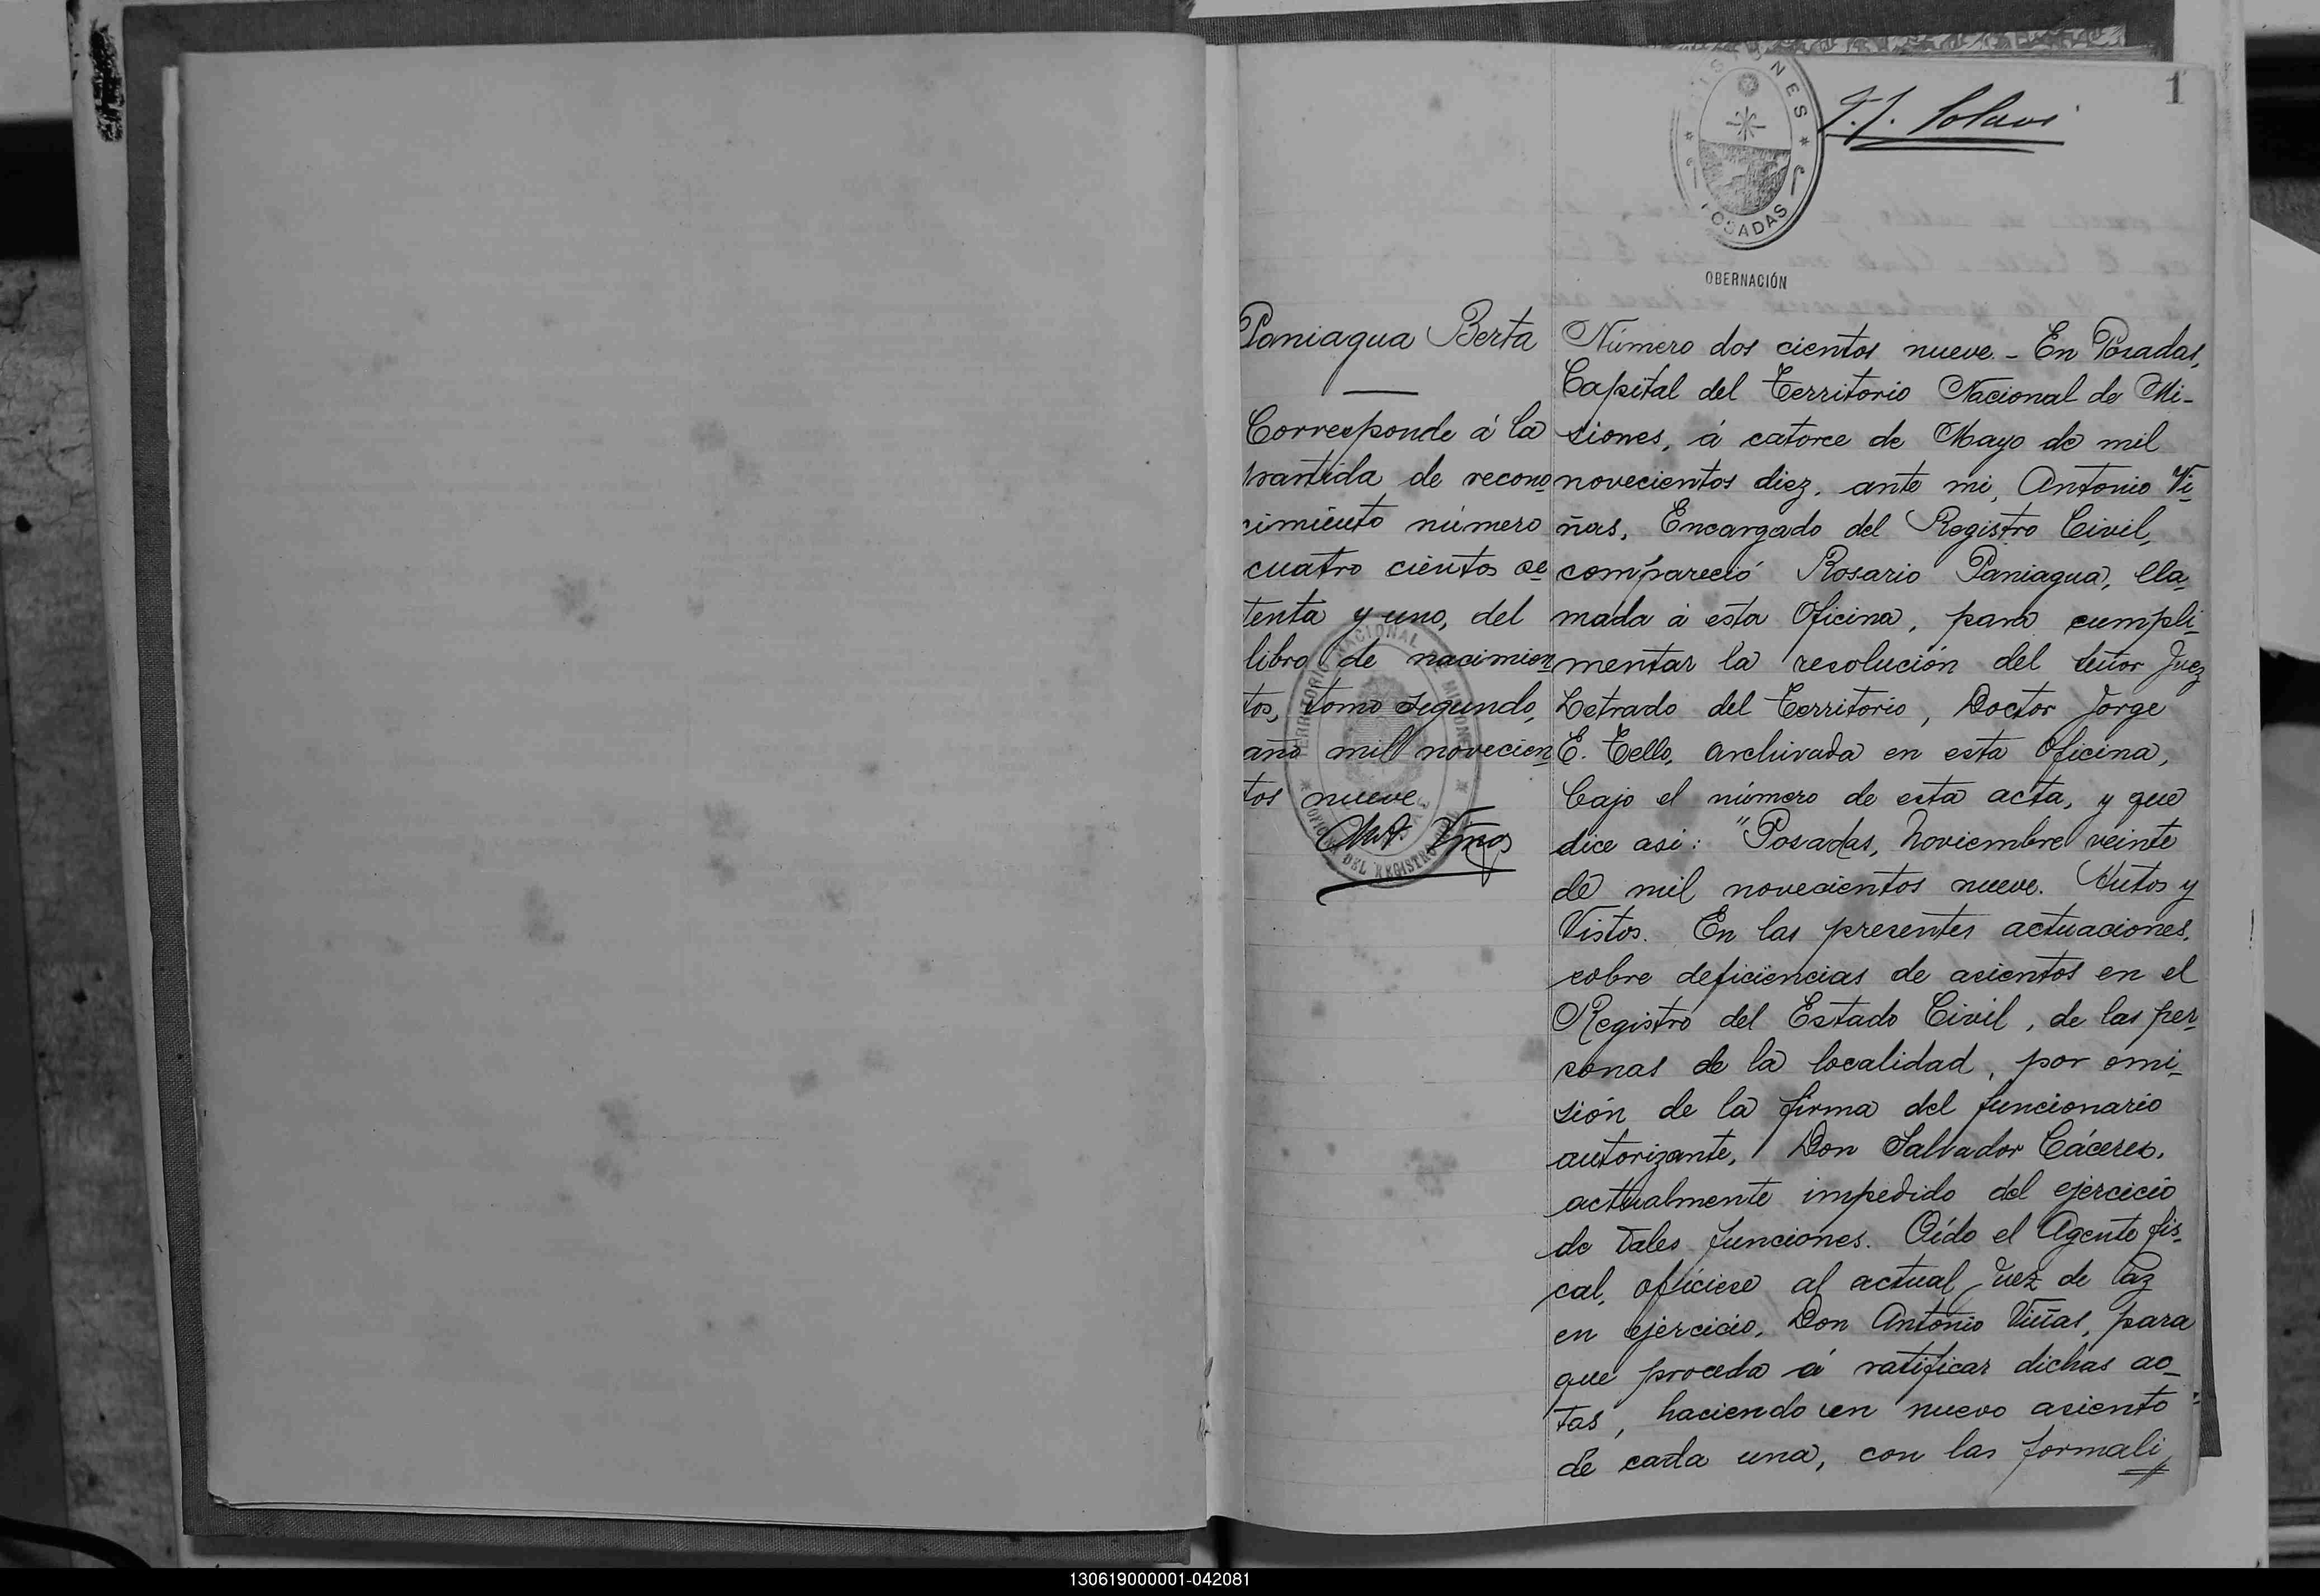 1
MISIONES
POSADAS
OBERNACIÓN
Paniagua Berta
Corresponde á la
partida de recono-
cimiento número
cuatro cientos se-
tenta y uno, del
libro de nacimien-
tos, tomo segundo,
año mil novecien-
tos nueve.
Ant. Viñas
TERRITORIO NACIONAL DE MISIONES
OFICINA DEL REGISTRO CIVIL
Número dos cientos nueve. - En Posadas,
Capital del Territorio Nacional de Mi-
siones, á catorce de Mayo de mil
novecientos diez, ante mi, Antonio Vi-
ñas, Encargado del Registro Civil,
compareció Rosario Paniagua, lla-
mada á esta Oficina, para cumpli-
mentar la resolución del señor Juez
Letrado del Territorio, Doctor Jorge
E. Tello, archivada en esta Oficina,
bajo el número de esta acta, y que
dice asi: "Posadas, Noviembre veinte
de mil novecientos nueve. Autos y
Vistos. En las presentes actuaciones,
sobre deficiencias de asientos en el
Registro del Estado Civil, de las per-
sonas de la localidad, por omi-
sión de la firma del funcionario
autorizante, Don Salvador Cáceres,
actualmente impedido del ejercicio
de tales funciones. Oído el Agente fis-
cal, ofíciese al actual Juez de Paz
en ejercicio, Don Antonio Viñas, para
que proceda á ratificar dichas ac-
tas, haciendo un nuevo asiento
de cada una, con las formali-
130619000001-042081